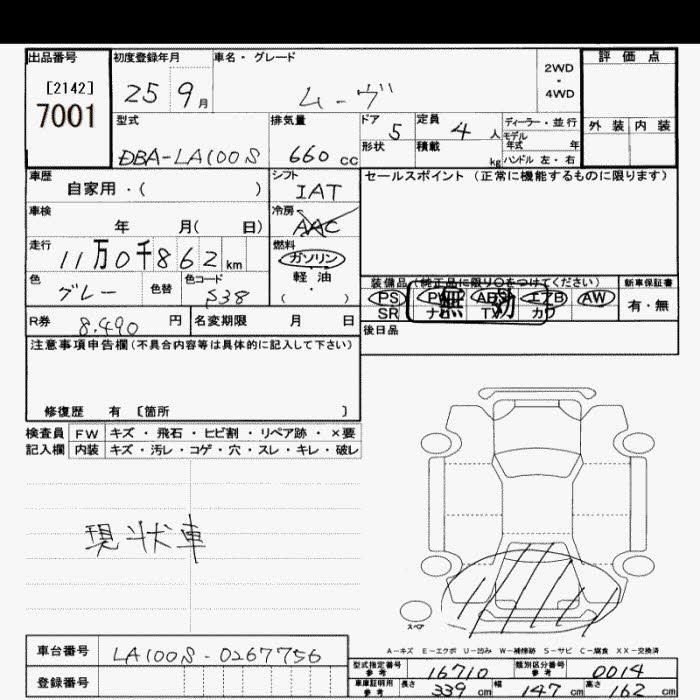 出品番号 初度登録年月 車名・グレード 評価点
[2142] 25 9月 ムーヴ 2WD・4WD
7001
型式 排気量 ドア 5 定員 4人 ディーラー・並行 外装 内装
DBA-LA100S 660cc 形状 積載 kg モデル年式 年
ハンドル 左・右
車歴 自家用・( ) シフト IAT セールスポイント (正常に機能するものに限ります)
車検 年 月( 日) 冷房 AAC
走行 11万0千862km 燃料 ガソリン
軽・油
( )
色 グレー 色替 色コード S38
装備品(純正品に限り○をつけてください) 新車保証書
PS PW ABS エアB AW 有・無
SR ナビ TV カワ
無効
R券 8,490円 名変期限 月 日 後日品
注意事項申告欄(不具合内容等は具体的に記入して下さい)
修復歴 有 〔箇所 〕
検査員 FW キズ・飛石・ヒビ割・リペア跡・×要
記入欄 内装 キズ・汚レ・コゲ・穴・スレ・キレ・破レ
現状車
スペア
A-キズ E-エクボ U-凹み W-補修跡 S-サビ C-腐食 XX-交換済
車台番号 LA100S-0267756
登録番号
型式指定番号 参考 16710 類別区分番号 参考 0014
車庫証明用 参考 長さ 339cm 幅 147cm 高さ 162cm